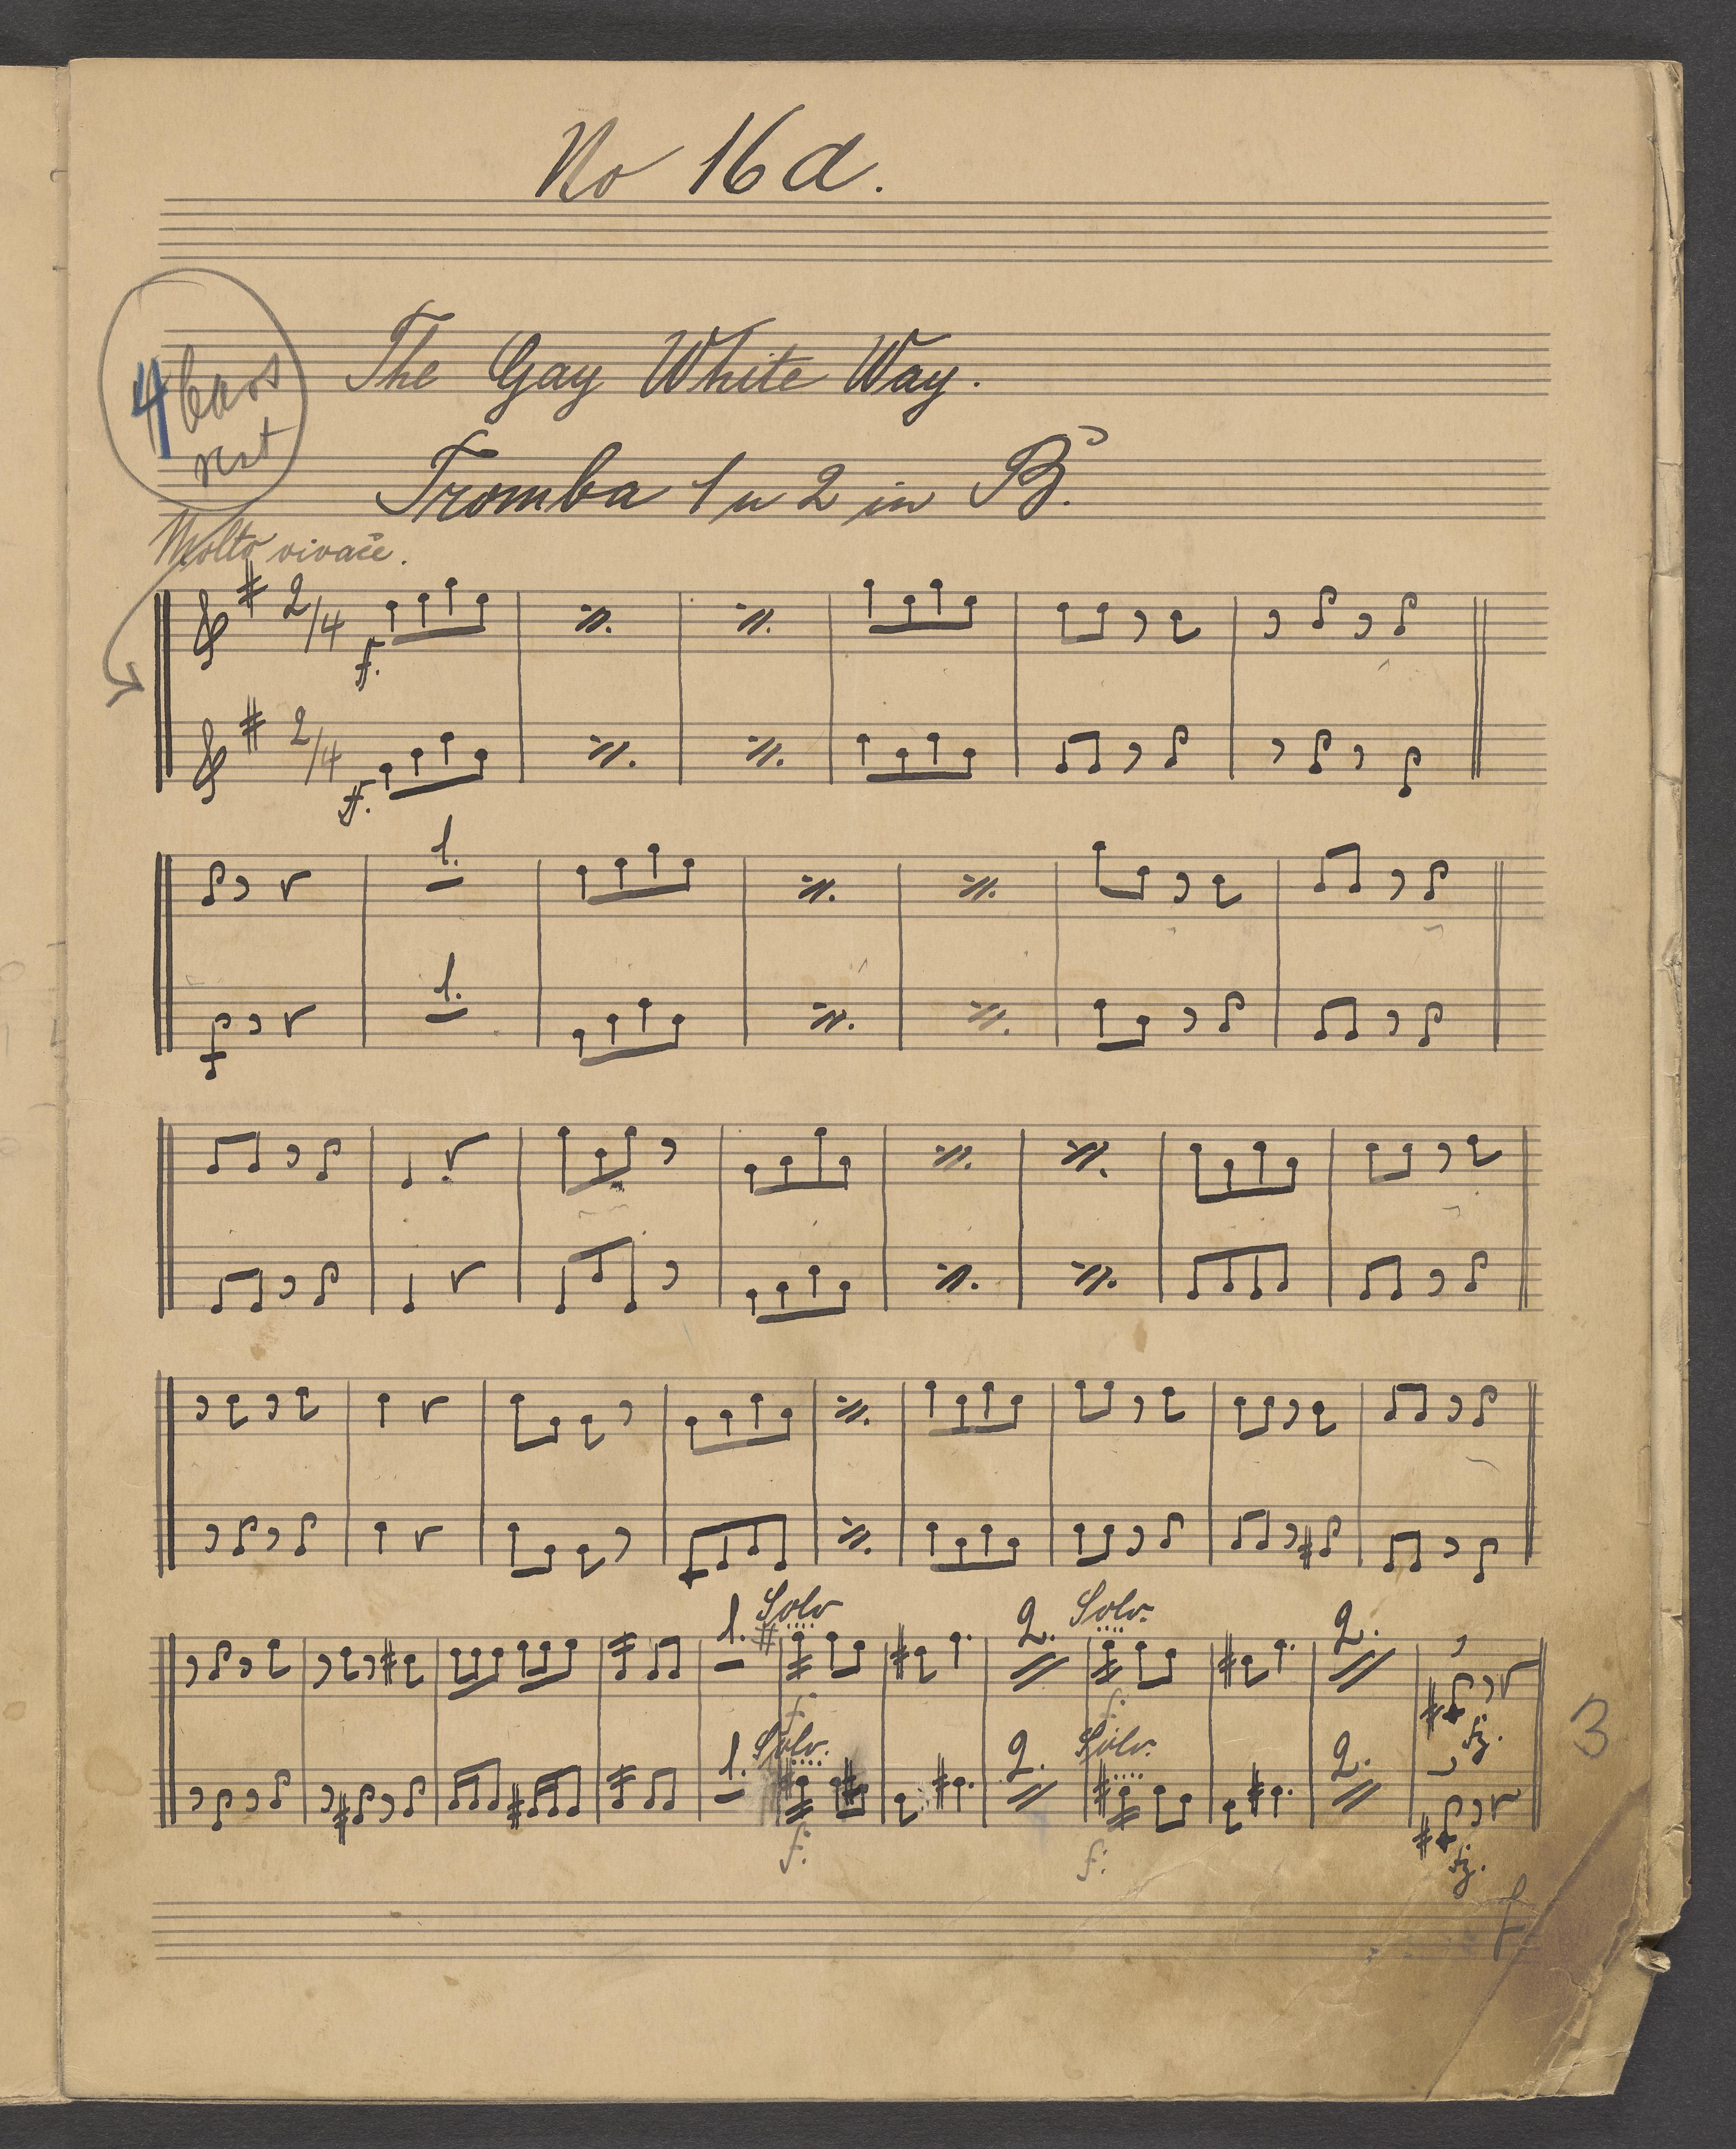 No 16d.
4 bars
rest
The Gay White Way.
Tromba 1 u 2 in B.
Molto vivace.
2/4
f.
2/4
f.
1.
1.
1. Solo 2. Solo. 2.
f. f. fz.
1. Solo. 2. Solo. 2.
f. f. fz.
3